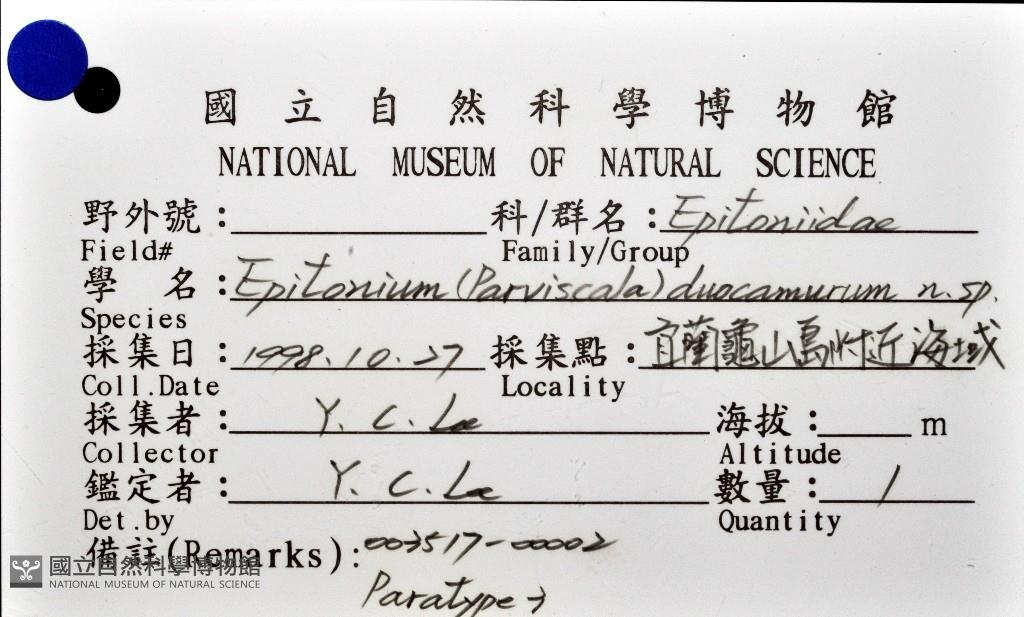 國立自然科學博物館
NATIONAL MUSEUM OF NATURAL SCIENCE
野外號： 科/群名：Epitoniidae
Field# Family/Group
學 名：Epitonium (Parviscala) duocamurum n.sp.
Species
採集日：1998.10.27 採集點：宜蘭龜山島附近海域
Coll.Date Locality
採集者：Y. C. Lee 海拔： m
Collector Altitude
鑑定者：Y. C. Lee 數量：1
Det.by Quantity
備註(Remarks):003517-00002
Paratype→
國立自然科學博物館
NATIONAL MUSEUM OF NATURAL SCIENCE